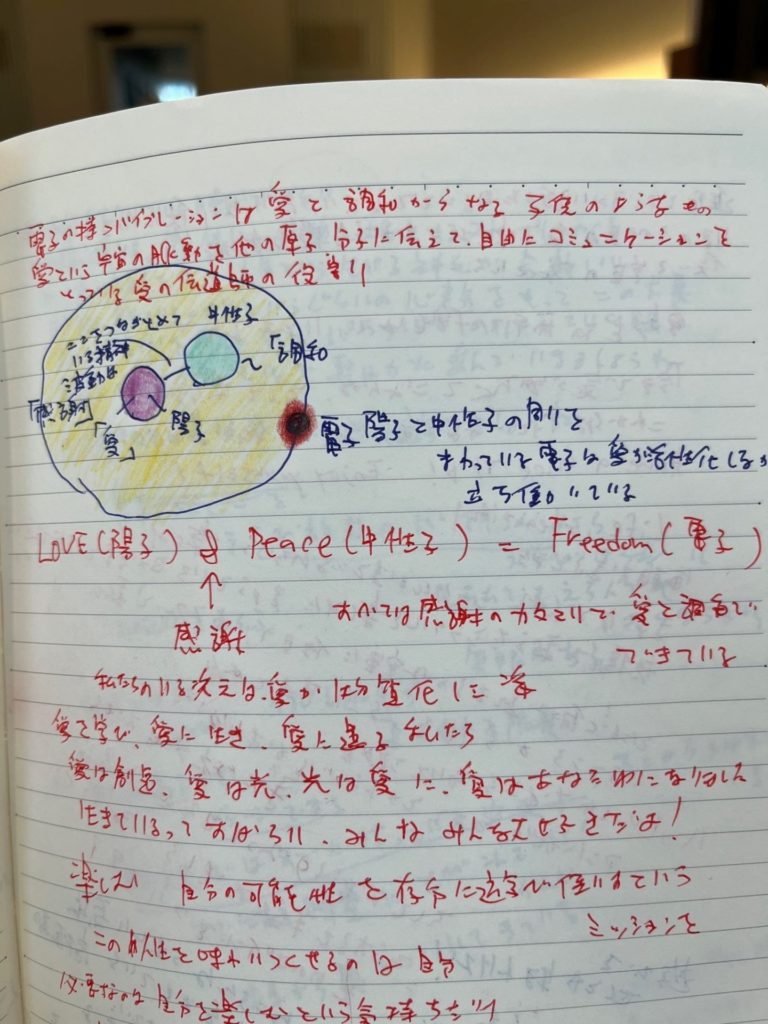 電子の持つバイブレーションは愛と調和からなる子供のようなもの
愛という宇宙の波動を他の原子 分子に伝えて、自由にコミュニケーションを
とっている愛の伝道師の役割り
ここをつなぎとめて
いる精神
波動は
「感謝」
中性子
「調和
「愛」
陽子
電子 陽子と中性子の周りを
まわっている電子は愛が活性化し
立ち働いている
LOVE(陽子) & Peace(中性子) = Freedom(電子)
↑
感謝
すべては感謝の力で 愛と調和で
できている
私たちのいる次元は、愛が物質化した
愛で学び、愛に生き、愛に還る 私たち
愛は創造、愛は光、光は愛に、愛はあなたに
生きているってすばらしい、みんなみんな大好きだよ!
楽しむ 自分の可能性を存分に遊び という
ミッションを
この人生を味わいつくせるのは自分
必要なのは自分を楽しむという気持ちだけ